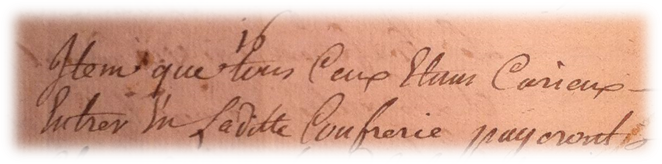 16
Item que tous Ceux Etans Curieux
Entrer En Laditte Confrerie payeront